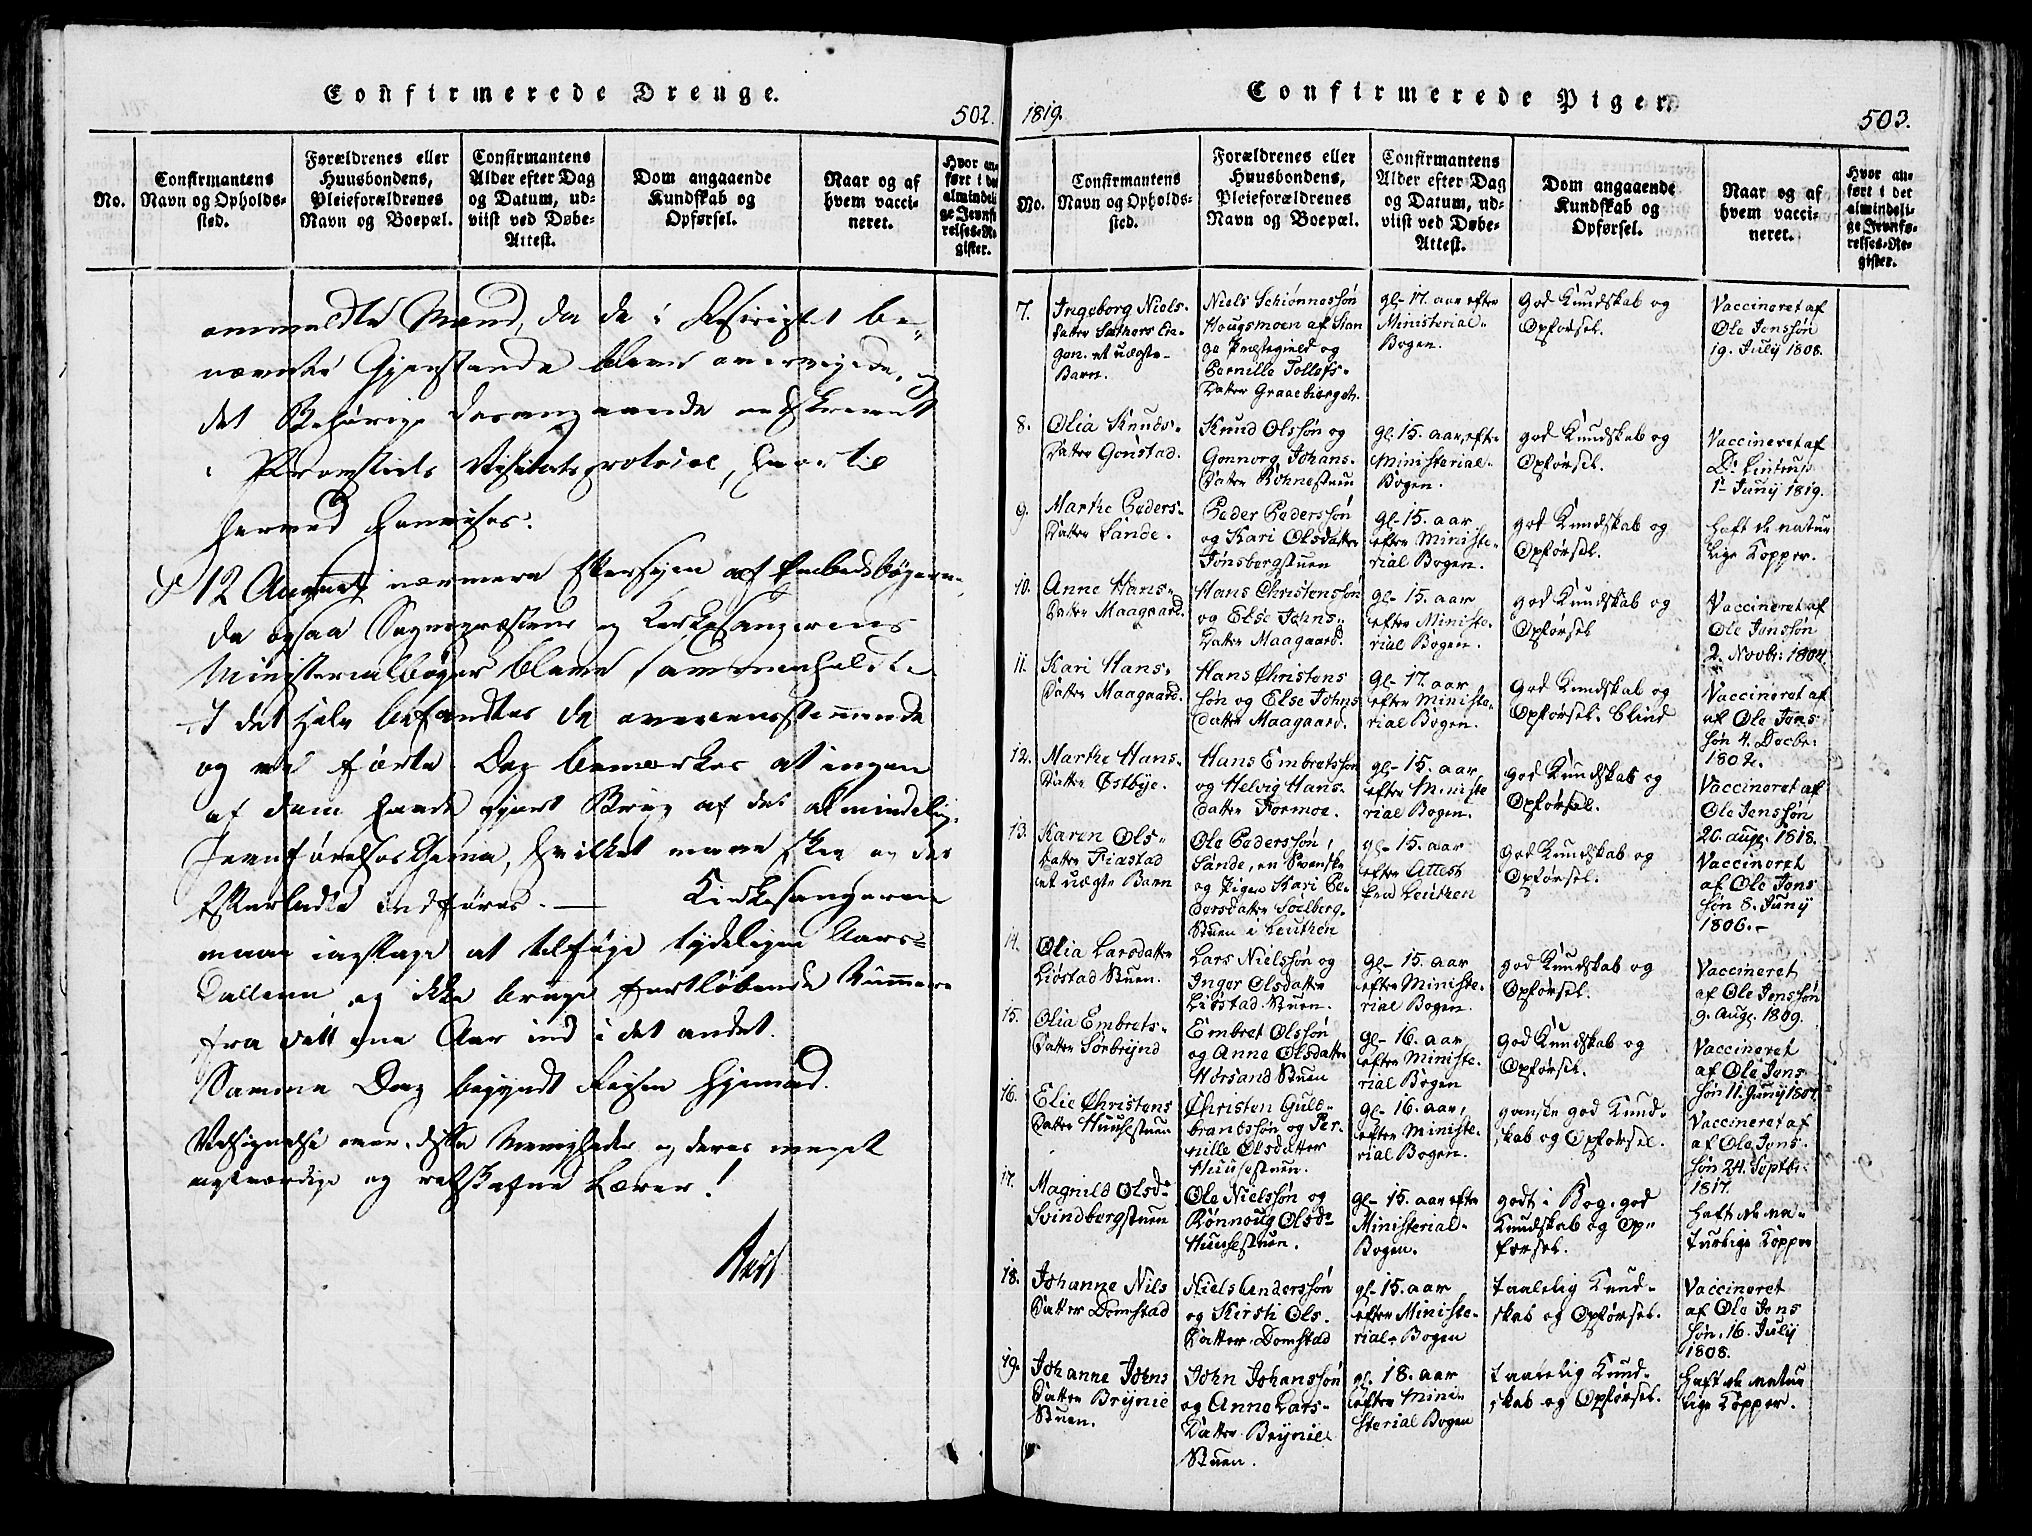 Confirmerede Drenge.
502.
No.
Confirmantens
Navn og Opholds-
sted.
Forældrenes eller
Huusbondens,
Pleieforældrenes
Navn og Boepæl.
Confirmantens
Alder efter Dag
og Datum, ud-
viist ved Døbe-
Attest.
Dom angaaende
Kundskab og
Opførsel.
Naar og af
hvem vacci-
neret.
Hvor an-
ført i det
almindeli-
ge Jevnfø-
relses-Re-
gister.
anmeldte Mænd, da de i Rescriptet be-
nævnte Gjenstande bleve overveyede, og
det Behørige desangaaende
i Provstiets Visitatsprotocol, hvortil
herved henvises.
d 12 August nærmere Eftersyn af Embedsbøgerne,
da ogsaa Sognepræstens og Kirkesangerens
Ministerialbøger bleve sammenholdte
I det Hele befandtes de overensstemmende
og vel førte. Dog bemærkes at ingen
af dem havde gjort Brug af det almindelige
Jevnførelses Chema, hvilket maae skee og det
Efterladte indføres. — Kirkesangeren
maae iagttage at tilføye tydeligen Aars-
Tallene og ikke bruge fortløbende Nummere
fra dett ene Aar ind i det andet.
Samme Dag begyndt Reysen hjemad.
Velsignelse over disse Menigheder og deres meget
agtværdige og retskafne Lærer!
1819.
Confirmerede Piger.
503.
No.
Confirmantens
Navn og Opholds-
sted.
Forældrenes eller
Huusbondens,
Pleieforældrenes
Navn og Boepæl.
Confirmantens
Alder efter Dag
og Datum, ud-
viist ved Døbe-
Attest.
Dom angaaende
Kundskab og
Opførsel.
Naar og af
hvem vacci-
neret.
Hvor an-
ført i det
almindeli-
ge Jevnfø-
relses-Re-
gister.
7.
Ingeborg Niels-
Datter Sæthers En-
gen. et uægte-
Barn.
Niels Schiønnessøn
Hougsmoen af Stan
ge Præstegield og
Pernille Tollefs-
Datter Graaebierget.
gl- 17. aar efter
Ministerial-
Bogen.
God Kundskab og
Opførsel.
Vaccineret af
Ole Jonssøn
19. July 1808.
8.
Olia Knuds-
Datter Gonstad.
Knud Olssøn og
Gonnorg Johans-
Datter Kohnestuen
gl. 15. aar, efter
Ministerial-
Bogen.
god Kundskab og
Opførsel.
Vaccineret af
Dr: Pintrup
1- Juny 1819.
9.
Marthe Peders-
Datter Sande.
Peder Pederssøn
og Kari Olsdatter
Jønsbergstuen
gl- 15. aar
efter Ministe-
rial Bogen.
god Kundskab og
Opførsel.
haft de natur
lige Kopper.
10.
Anne Hans-
Datter Maagaard.
Hans Christenssøn
og Else Johns-
Datter Maagaard.
gl- 15. aar
efter Ministe-
rial Bogen.
god Kundskab og
Opførsel
Vaccineret af
Ole Jonssøn
2. Novbr: 1804.
11.
Kari Hans-
Datter Maagaard.
Hans Christens
søn og Else Johns
Datter Maagaard.
gl- 17. aar
efter Ministe-
rial Bogen.
God Kundskab og
Opførsel. blind
Vaccineret af
af Ole Jons-
søn 4. Decbr:
1802.
12.
Marthe Hans-
Datter Østbye.
Hans Embretssøn
og Helvig Hans-
datter Formoe.
gl- 15. aar
efter Ministe
rial Bogen.
god Kundskab og
Opførsel.
Vaccineret af
Ole Jenssøn
20. augt. 1818.
13.
Karen Ols-
Datter Fiæstad
et uægte Barn
Ole Pederssøn
Sande, en Svenske
og Pigen Kari Pe-
dersdatter Soelberg-
Stuen i Leuthen
gl- 15. aar
efter Attest
fra Leuthen
god Kundskab og
Opførsel.
Vaccineret
af Ole Jons
søn 8. Juny
1806.-
14.
Olia Larsdatter
Liøstad Stuen.
Lars Nielssøn og
Inger Olsdatter
Liøstad. Stuen.
gl- 15. aar
efter Ministe-
rial Bogen.
god Kundskab og
Opførsel.
Vaccineret
af Ole Jonssøn
9. augt. 1809.
15.
Olia Embrets-
Datter Sørbrynd
Embret Olssøn
og Anne Olsdatter
Horsand Stuen
gl- 16. aar
efter Ministe-
rial Bogen
god Kundskab og
Opførsel.
Vaccineret
af Ole Jons-
søn 11. Juny 1807.
16.
Elie Christens
Datter Huusestuen
Christen Guld-
brandssøn og Per-
nille Olsdatter
Huusestuen.
gl- 16. aar,
efter Ministe-
rial Bogen.
ganske god Kund-
skab og Opførsel.
Vaccineret af
af Ole Jons-
søn 24. Septbr:
1817.
17.
Magnild Olsdr
Svindbergstuen
Ole Nielssøn og
Rønnoug Olsdr
Huusestuen.
gl- 15. aar efter
Ministerial-
Bogen.
godt i Bog. god
Kundskab og Op-
førsel.
haft de na-
turlige Kopper
18.
Johanne Nils
Datter Domstad
Niels Anderssøn
og Kirsti Ols-
Datter Domstad
gl- 15. aar
efter Ministe-
rial- Bogen
taalelig Kund-
skab og Opførsel.
Vaccineret
af Ole Jons
søn. 16. July
1808.
19.
Johanne Johns
Datter Brynie
Stuen.
John Johanssøn
og Anne Lars-
Datter Brynie
Stuen.
gl. 18. aar
efter Mini-
sterial Bogen
taalelig Kund-
skab og Opførsel.
haft de natur
lige Kopper.